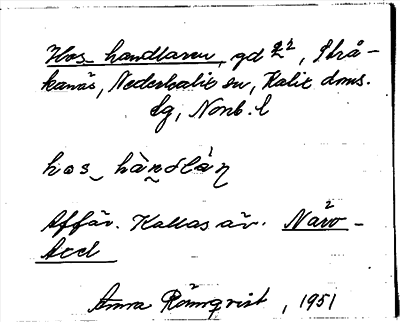 Hos handlaren, gd 2², Strå-
kanäs, Nederkalix sn, Kalix doms.
lg, Nonb. l
hos_ handlán
Affär. Kallas äv.
Anna Rönnqvist, 1951